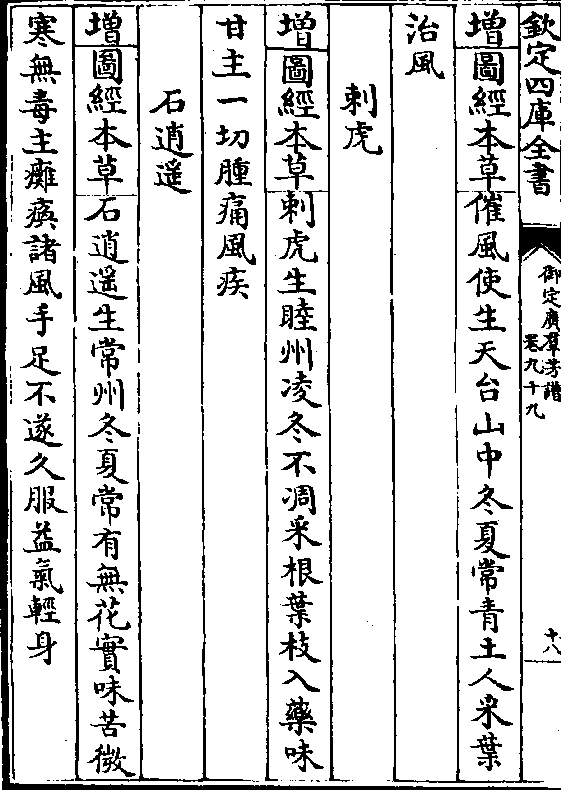 欽定四庫全書
御定廣羣芳譜
卷九十九
十八
增圖經本草催風使生天台山中冬夏常青土人采葉
治風
刺虎
增圖經本草刺虎生睦州凌冬不凋采根葉枝入藥味
甘主一切腫痛風疾
石逍遥
增圖經本草石逍遥生常州冬夏常有無花實味苦微
寒無毒主癱瘓諸風手足不遂久服益氣輕身